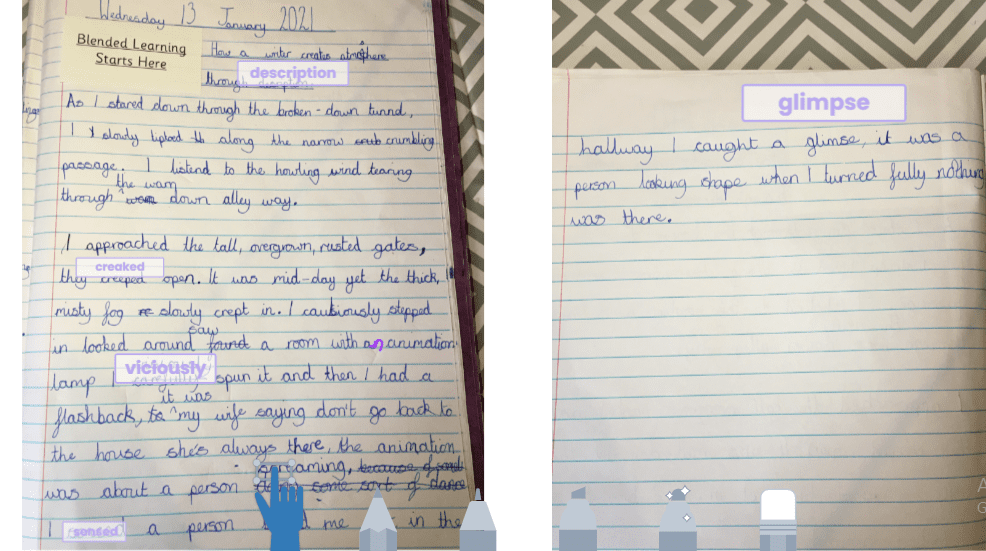 Wednesday 13 January 2021
Blended Learning
Starts Here
How a writer creates atmosphere
description
through
As I stared down through the broken-down tunnel,
I slowly tiptoed along the narrow crumbling
passage. I listend to the howling wind tearing
the warn
through down alley way.
I approached the tall, overgrown, rusted gates,
creaked
they creeped open. It was mid-day yet the thick,
misty fog slowly crept in. I cautiously stepped
saw
in looked around found a room with an animation
viciously
lamp I carefully spun it and then I had a
it was
flashback, to my wife saying don't go back to
the house she's always there, the animation
screaming, because of
was about a person some sort of dance
I sensed a person me in the
glimpse
hallway I caught a glimse, it was a
person looking shape when I turned fully nothing
was there.